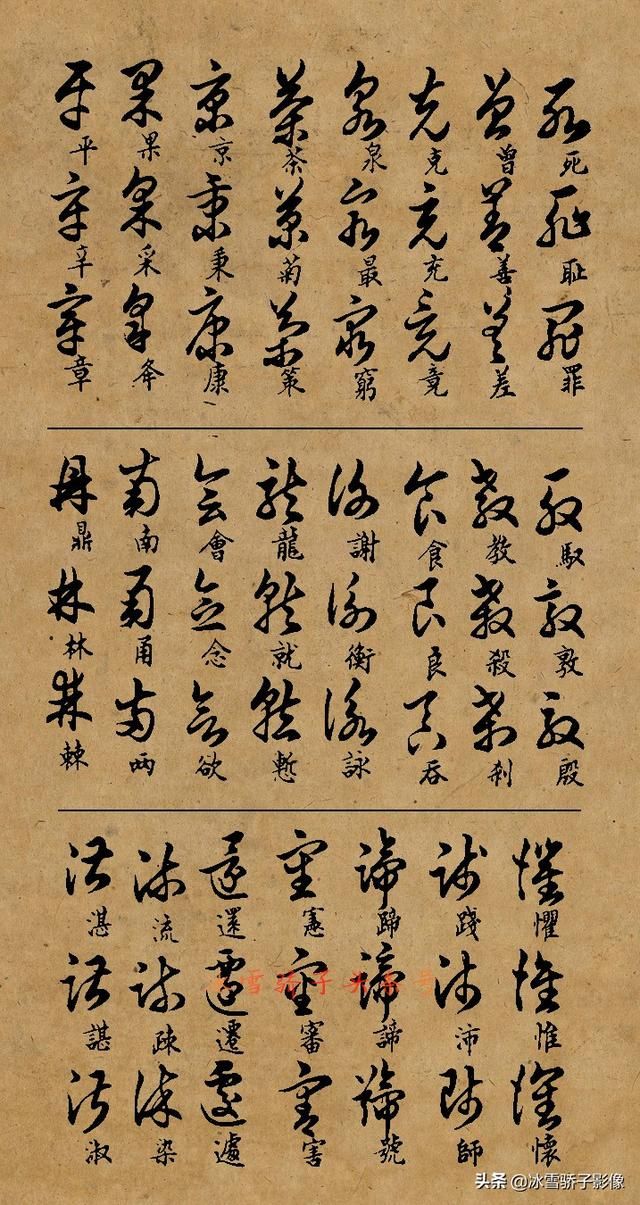 死 耻 罪
曾 善 差
克 充 竟
泉 最 窮
茶 菊 策
京 秉 康
果 采 奔
平 辛 章
馭 敦 殷
教 殺 刹
食 良 吞
謝 衡 詠
龍 就 慙
會 念 欲
南 甬 兩
鼎 林 棘
懼 惟 懷
踐 沛 師
蹄 諦 號
憲 審 害
還 遷 遽
流 疎 染
湛 諶 淑
冰雪骄子头条号
头条 @冰雪骄子影像